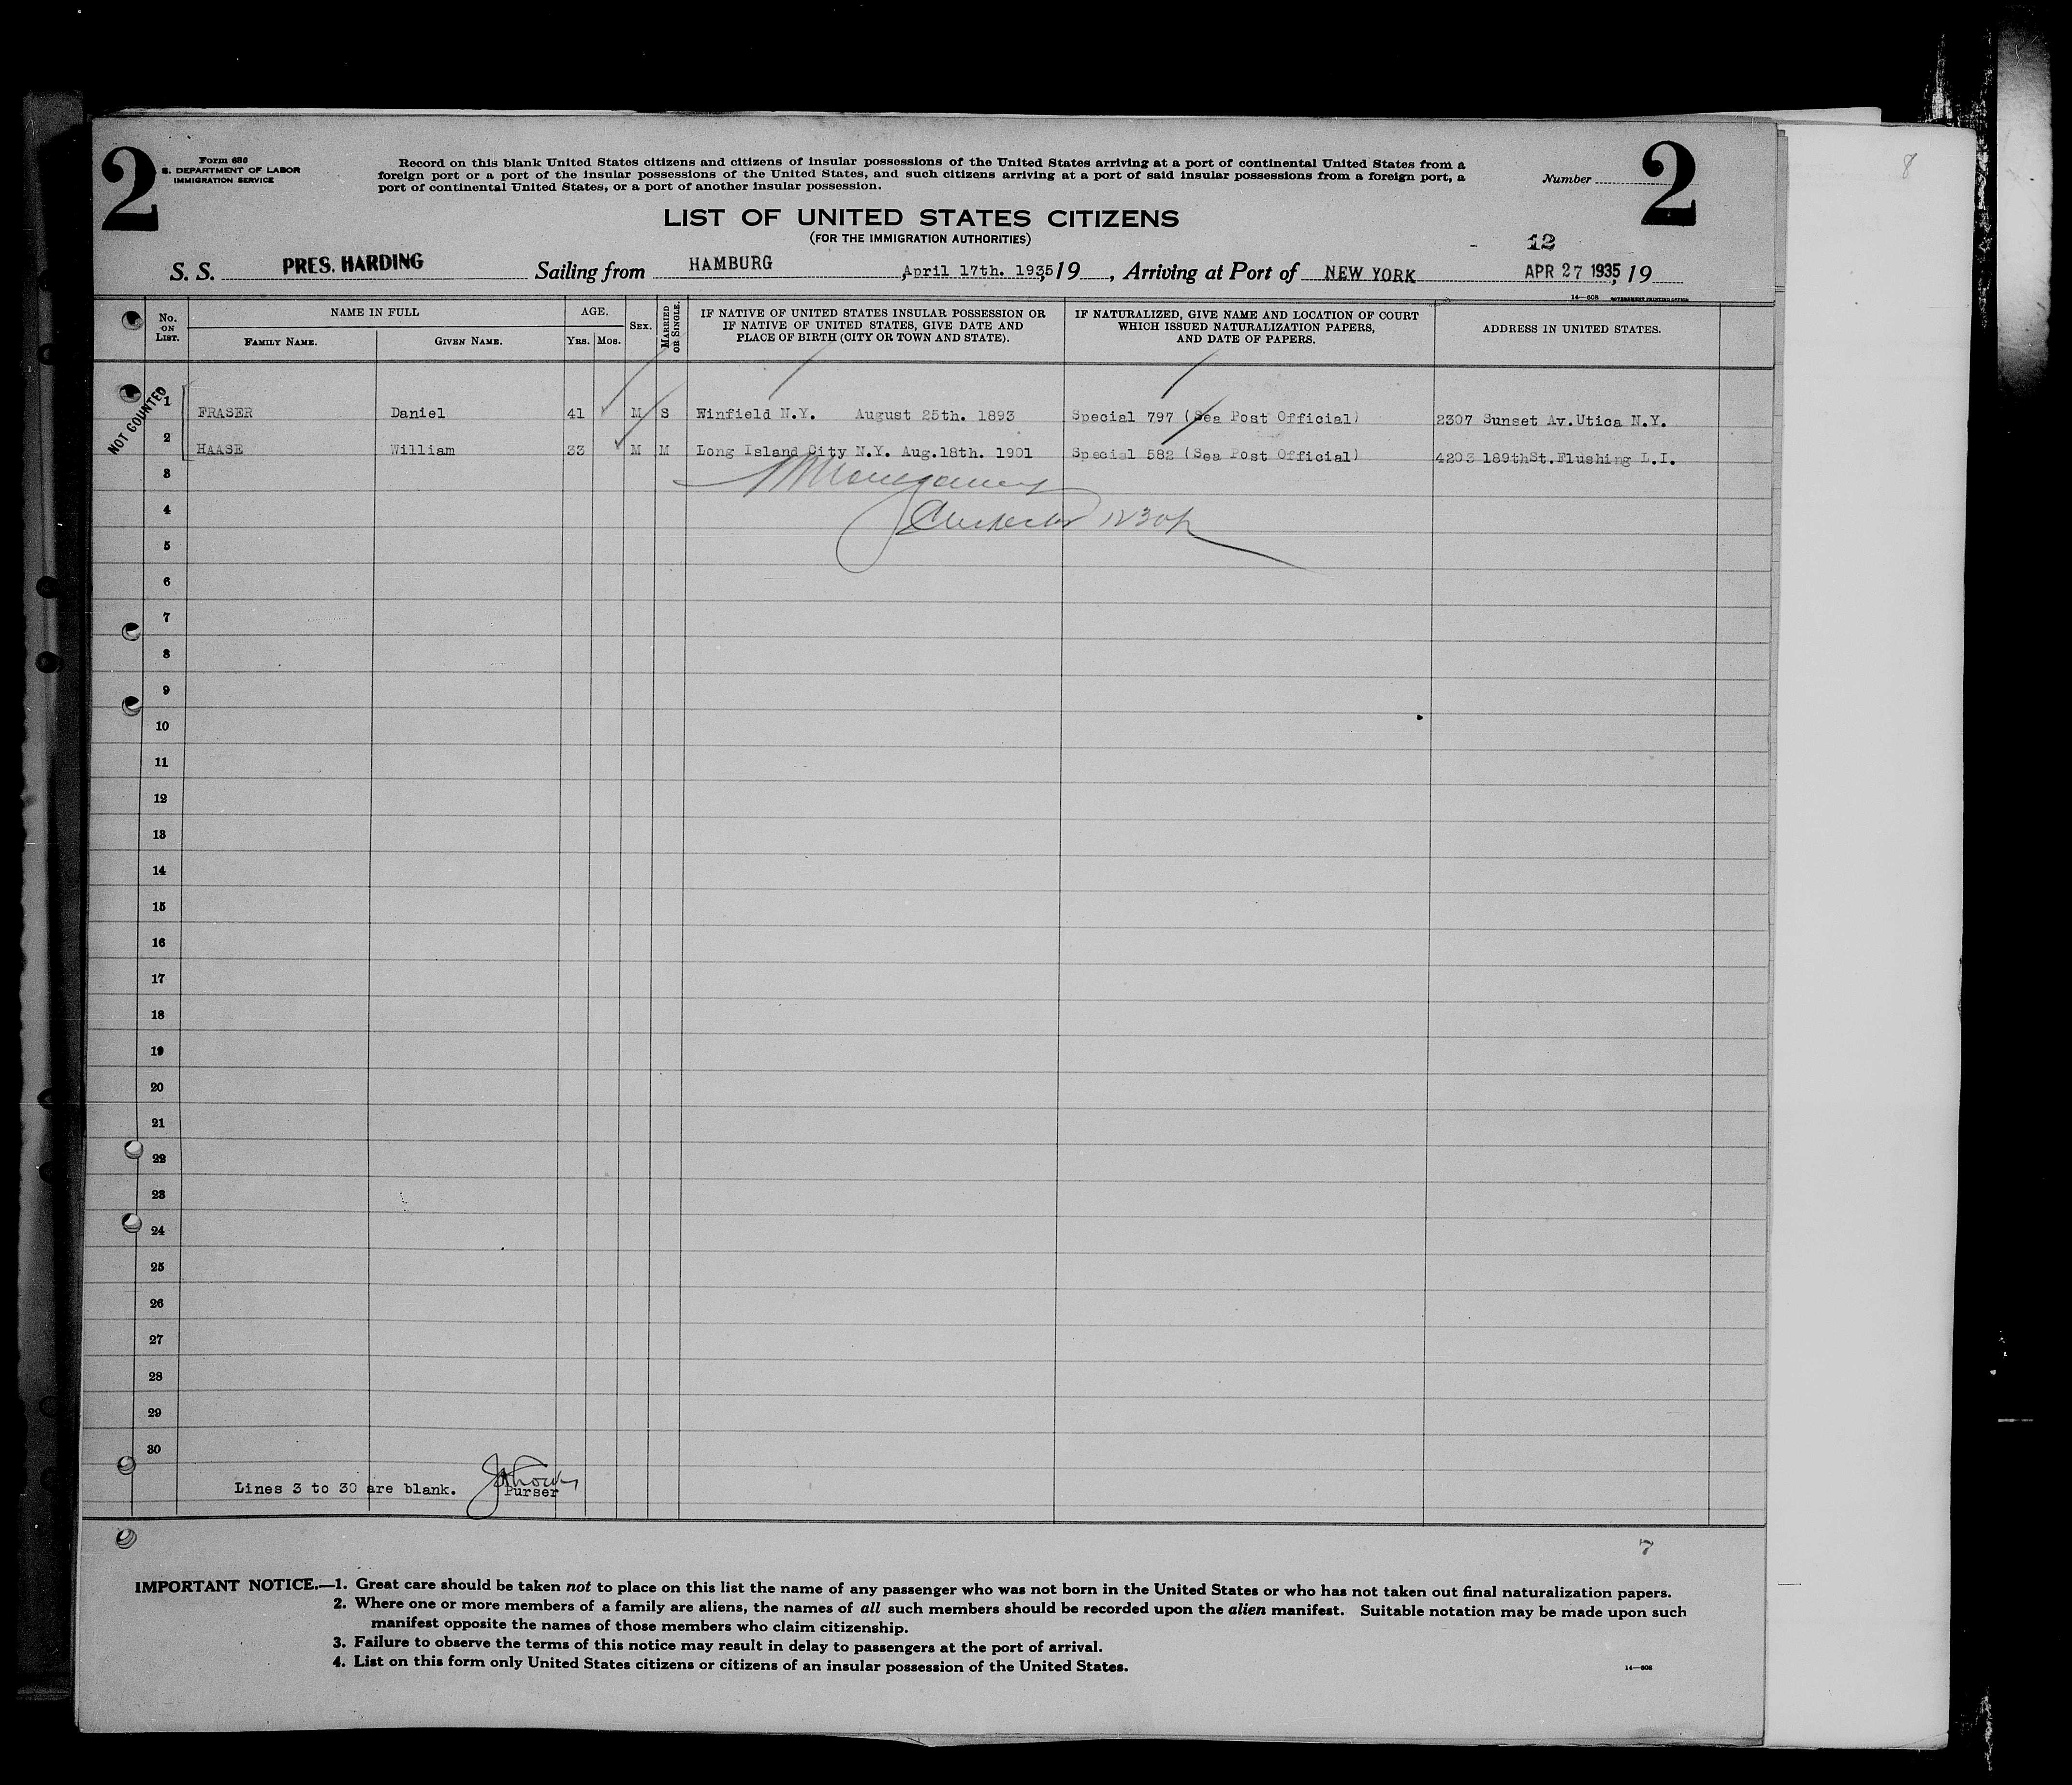 2
Form 630
S. DEPARTMENT OF LABOR
IMMIGRATION SERVICE
Record on this blank United States citizens and citizens of insular possessions of the United States arriving at a port of continental United States from a
foreign port or a port of the insular possessions of the United States, and such citizens arriving at a port of said insular possessions from a foreign port, a
port of continental United States, or a port of another insular possession.
Number
2
8
LIST OF UNITED STATES CITIZENS
(FOR THE IMMIGRATION AUTHORITIES)
12
S. S. PRES. HARDING Sailing from HAMBURG , April 17th. 1935 19 , Arriving at Port of NEW YORK APR 27 1935, 19
14—608 GOVERNMENT PRINTING OFFICE
No. ON LIST. NAME IN FULL AGE. SEX. MARRIED OR SINGLE. IF NATIVE OF UNITED STATES INSULAR POSSESSION OR IF NATIVE OF UNITED STATES, GIVE DATE AND PLACE OF BIRTH (CITY OR TOWN AND STATE). IF NATURALIZED, GIVE NAME AND LOCATION OF COURT WHICH ISSUED NATURALIZATION PAPERS, AND DATE OF PAPERS. ADDRESS IN UNITED STATES.
FAMILY NAME. GIVEN NAME. YRS. MOS.
NOT COUNTED
1 FRASER Daniel 41 M S Winfield N.Y. August 25th. 1893 Special 797 (Sea Post Official) 2307 Sunset Av.Utica N.Y.
2 HAASE William 33 M M Long Island City N.Y. Aug.18th. 1901 Special 582 (Sea Post Official) 4203 189thSt.Flushing L.I.
3
4 Inspector 1230p
5
6
7
8
9
10
11
12
13
14
15
16
17
18
19
20
21
22
23
24
25
26
27
28
29
30
Lines 3 to 30 are blank. Purser
7
IMPORTANT NOTICE.—1. Great care should be taken not to place on this list the name of any passenger who was not born in the United States or who has not taken out final naturalization papers.
2. Where one or more members of a family are aliens, the names of all such members should be recorded upon the alien manifest. Suitable notation may be made upon such
manifest opposite the names of those members who claim citizenship.
3. Failure to observe the terms of this notice may result in delay to passengers at the port of arrival.
4. List on this form only United States citizens or citizens of an insular possession of the United States.
14—608